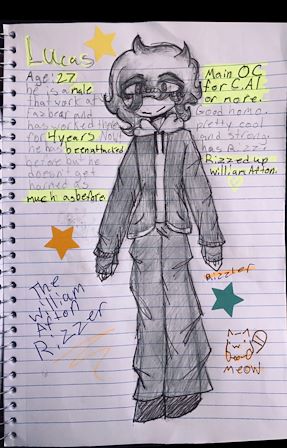 Lucas
Age: 27
he is a male
that work at
fazbear and
has worked there
for 4years. Now
he has beenattacked
before but he
doesn't get
harmed as
much as before.
Main OC
for C.AI
or more.
Good homo,
pretty
and strong.
has Rizz.
Rizzed up
William Afton.
The
William
Afton
Rizzer
Rizzler
meow